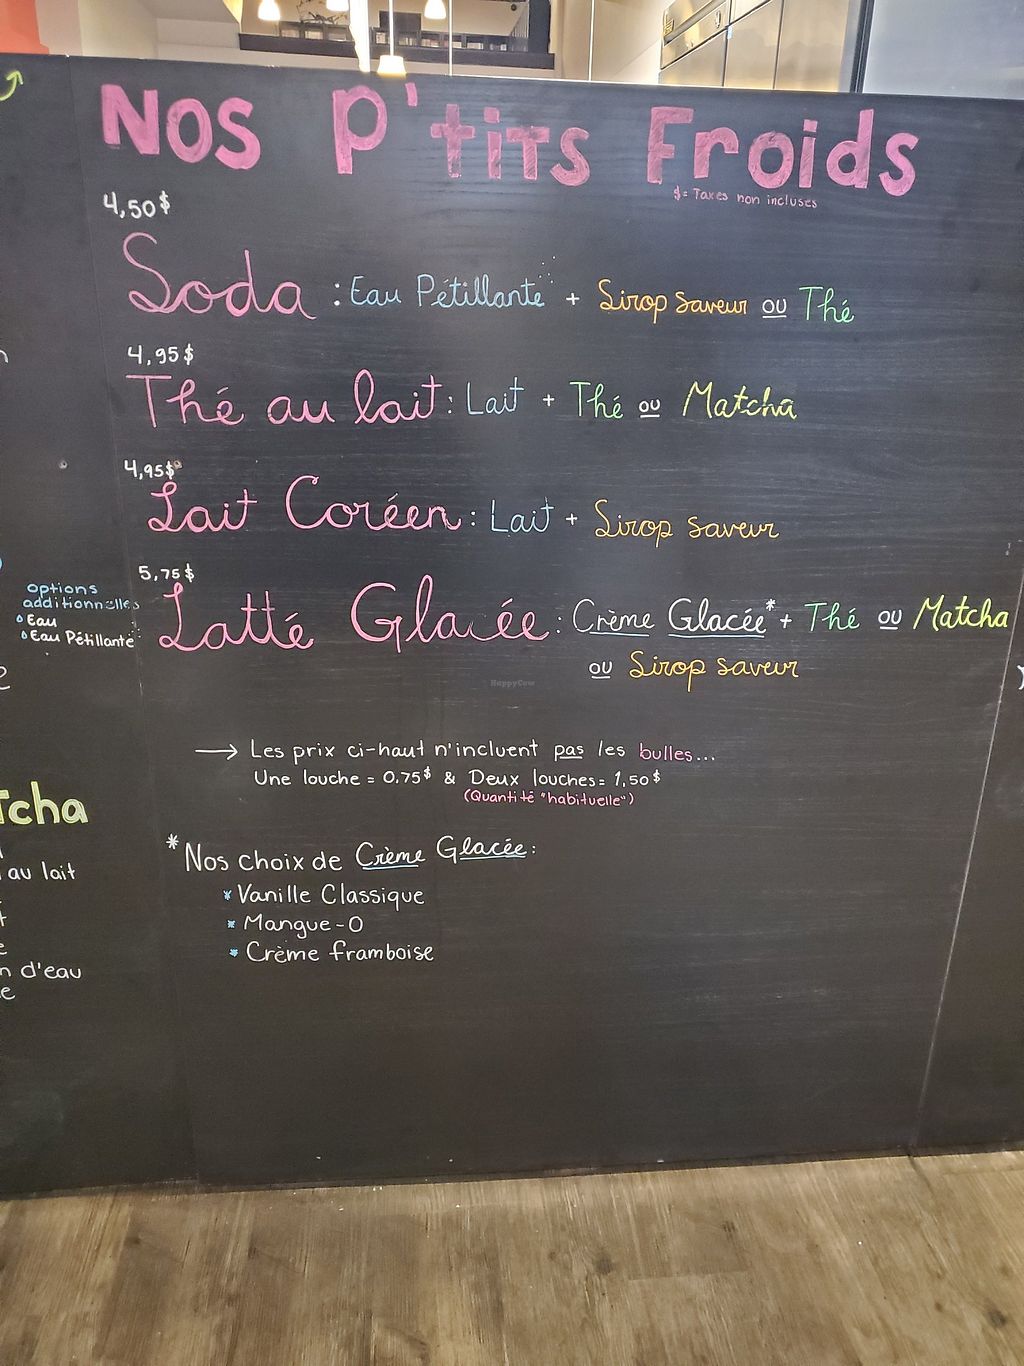 Nos P'tits Froids
$= Taxes non incluses
4,50$
Soda : Eau Pétillante + Sirop saveur ou Thé
4,95$
Thé au lait : Lait + Thé ou Matcha
4,95$
Lait Coréen : Lait + Sirop saveur
5,75$
Latté Glacée : Crème Glacée* + Thé ou Matcha
ou Sirop saveur
options
additionnelles
Eau
Eau Pétillante
HappyCow
→ Les prix ci-haut n'incluent pas les bulles...
Une louche = 0.75$ & Deux louches= 1,50$
(Quantité "habituelle")
*Nos choix de Crème Glacée:
* Vanille Classique
* Mangue-O
* Crème framboise
tcha
au lait
n d'eau